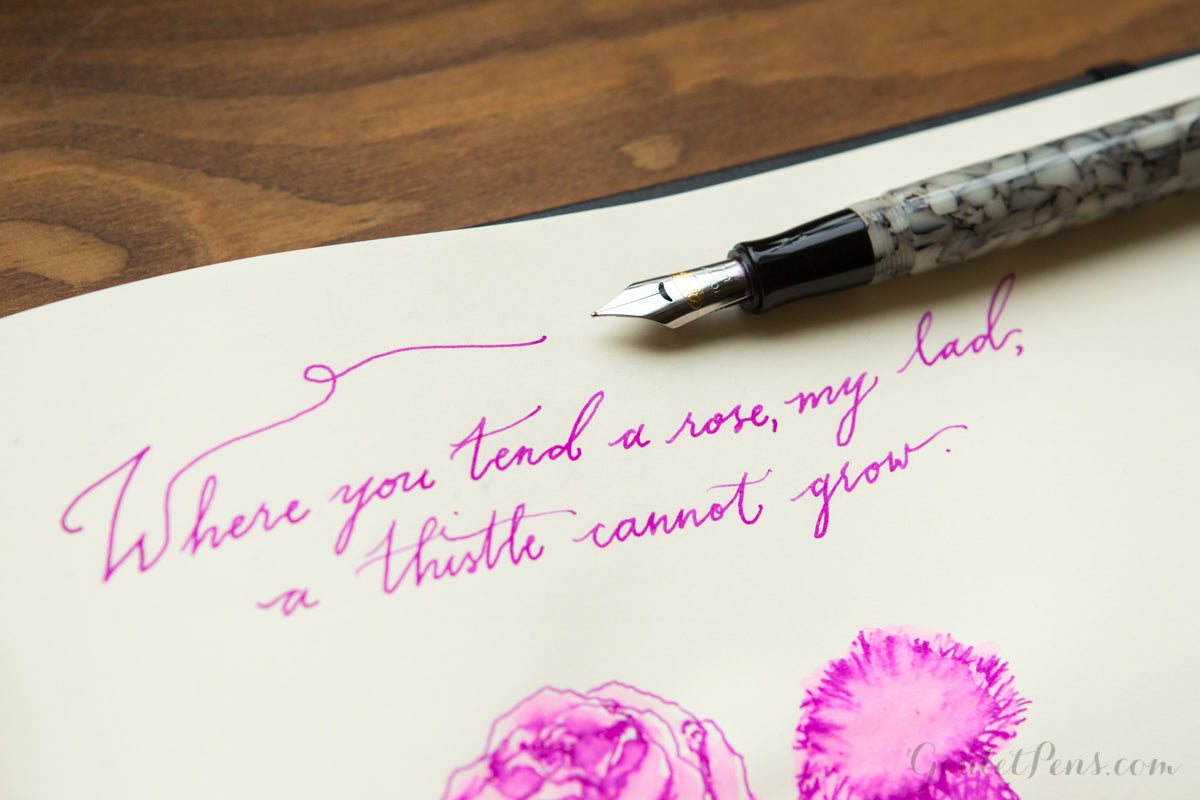 Where you tend a rose, my lad,
a thistle cannot grow.
GouletPens.com